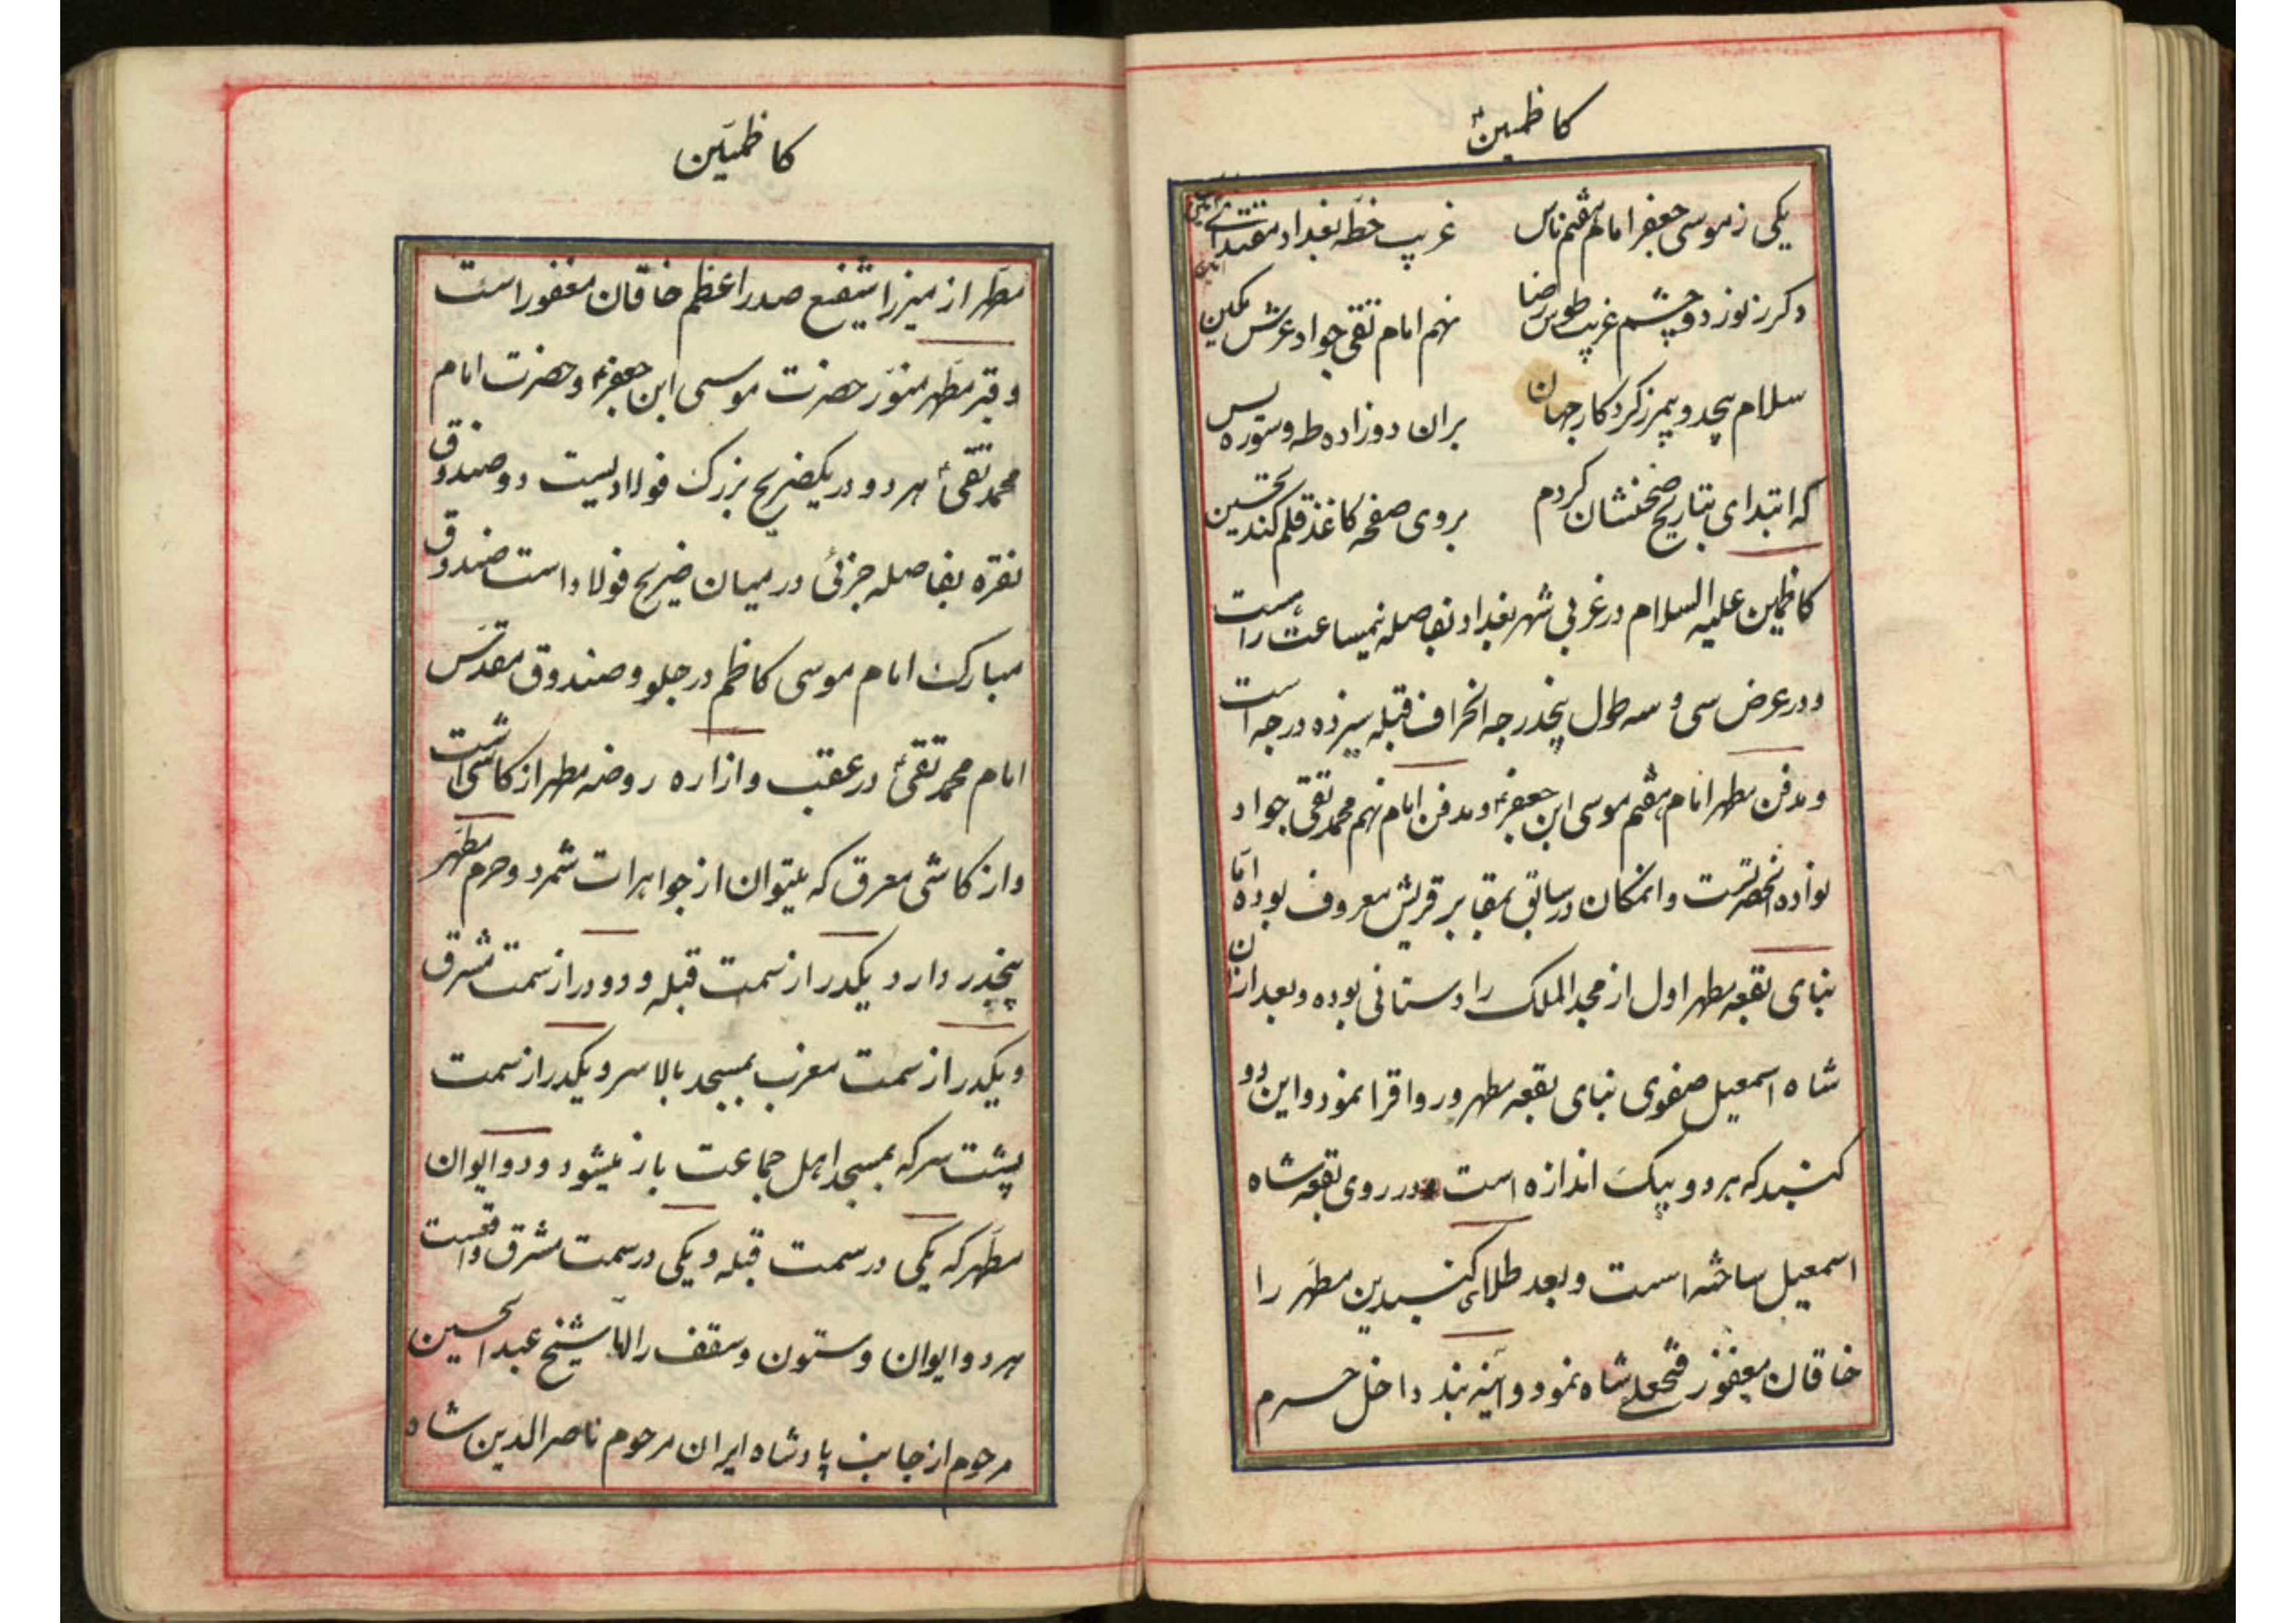 کاظمین
یکی ز موسی جعفر امام هفتم ناس
غریب خطه بغداد مقتدای
دکر ز نور دو چشم غریب طوس رضا
نهم امام تقی جواد عرش مکین
سلام بیحد و بیمر ز کردکار جهان
بران دو زاده طه و سوره یس
که ابتدای بتاریخ صحنشان کردم
بروی صفحه کاغذ قلم کند تحسین
کاظمین علیه السلام در غربی شهر بغداد بفاصله نیمساعت راهست
و در عرض سی و سه طول پنجدرجه انحراف قبله سیزده درجه است
و مدفن مطهر امام هفتم موسی ابن جعفر و مدفن امام نهم محمد تقی جواد
نواده انحضرتست و انمکان در سابق بمقابر قریش معروف بوده اما
بنای بقعه مطهر اول از مجد الملک رادستانی بوده و بعد ازان
شاه اسمعیل صفوی بنای بقعه مطهر و رواقرا نمود و این دو
کنبد که هر دو بیک اندازه است در روی بقعه شاه
اسمعیل ساخته است و بعد طلای کنبدین مطهر را
خاقان مغفور فتحعلی شاه نمود و آینه بند داخل حرم
کاظمین
مطهر از میرزا شفیع صدر اعظم خاقان مغفور است
و قبر مطهر منور حضرت موسی ابن جعفر و حضرت امام
محمد تقی هر دو در یکضریح بزرک فولادیست دو صندوق
نقره بفاصله جزئی در میان ضریح فولاد است صندوق
مبارک امام موسی کاظم در جلو و صندوق مقدس
امام محمد تقی در عقب و ازاره روضه مطهر از کاشی است
و از کاشی معرق که میتوان از جواهرات شمرد و حرم مطهر
پنجدر دارد یکدر از سمت قبله و دو در از سمت مشرق
و یکدر از سمت مغرب بمسجد بالاسر و یکدر از سمت
پشت سر که بمسجد اهل جماعت باز میشود و دو ایوان
مطهر که یکی در سمت قبله و یکی در سمت مشرق واقعست
هر دو ایوان و ستون و سقف را شیخ عبد الحسین
مرحوم از جانب پادشاه ایران مرحوم ناصر الدین شاه